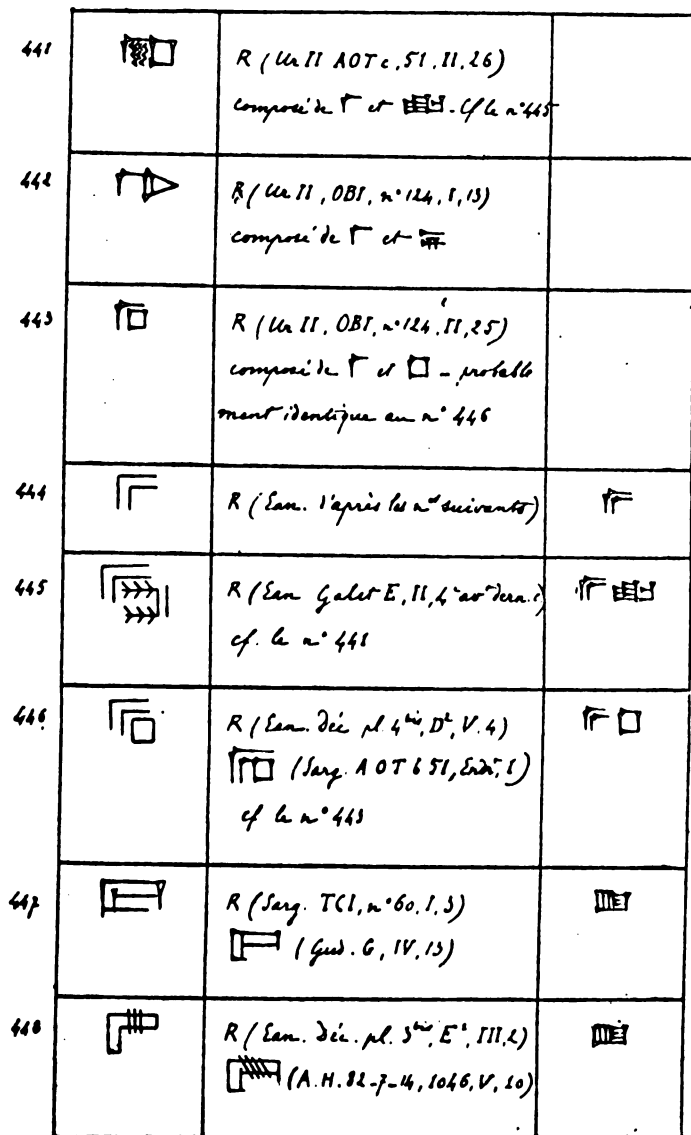 441 R (Ur II AOTc, 51, II, 26)
composé de et - Cf le n° 445
442 R (Ur II, OBI, n° 124, I, 13)
composé de et
443 R (Ur II, OBI, n° 124, II, 25)
composé de et - probable
ment identique au n° 446
444 R (Ean. d'après les nos suivants)
445 R (Ean Galet E, II, 4e avt dern. c)
cf. le n° 441
446 R (Ean. Déc pl. 4 bis, D2, V. 4)
(Sarg. AOT b 51, I)
cf le n° 443
447 R (Sarg. TCI, n° 60, I, 3)
(Gud. G, IV, 13)
448 R (Ean. Déc. pl. 3 bis, III, 2)
(A.H. 82-7-14, 1046, V, 10)